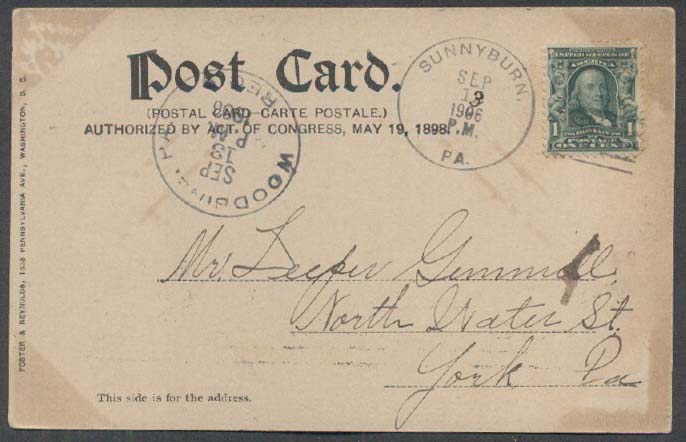 Post Card.
(POSTAL CARD-CARTE POSTALE.)
AUTHORIZED BY ACT. OF CONGRESS, MAY 19, 1898.
SUNNYBURN,
SEP
13
1906
P.M.
PA.
WOODBINE, PA.
REC'D
SEP
13
P M
1906
UNITED STATES OF
AMERICA
1 1
FRANKLIN
POSTAGE
ONE CENT
Mr. Leeper Gemmill
North Water St.
York Pa
This side is for the address.
FOSTER & REYNOLDS, 1333 PENNSYLVANIA AVE., WASHINGTON, D. C.